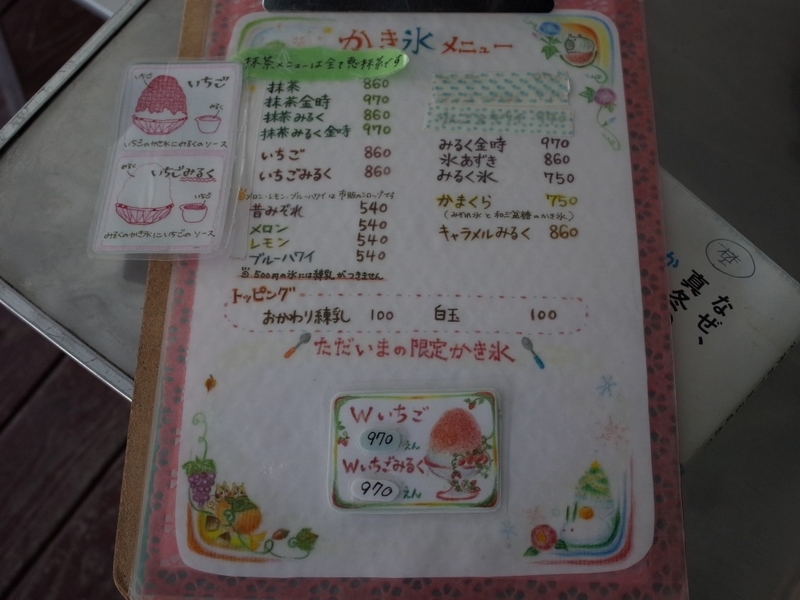 かき氷 メニュー
抹茶メニューは全て愈抹茶です
抹茶 860
抹茶金時 970
抹茶みるく 860
抹茶みるく金時 970
いちご 860
いちごみるく 860
メロン・レモン・ブルーハワイは市販のシロップです
昔みぞれ 540
メロン 540
レモン 540
ブルーハワイ 540
500円の氷には練乳がつきません
みるく金時 970
氷あずき 860
みるく氷 750
かまくら 750
(みぞれ氷と和三盆糖のかき氷)
キャラメルみるく 860
トッピング
おかわり練乳 100 白玉 100
ただいまの限定かき氷
Wいちご
970えん
Wいちごみるく
970えん
いちご
いちご
みるく
いちごのかき氷にみるくのソース
みるく
いちごみるく
いちご
みるくのかき氷にいちごのソース
なぜ、
真冬
か